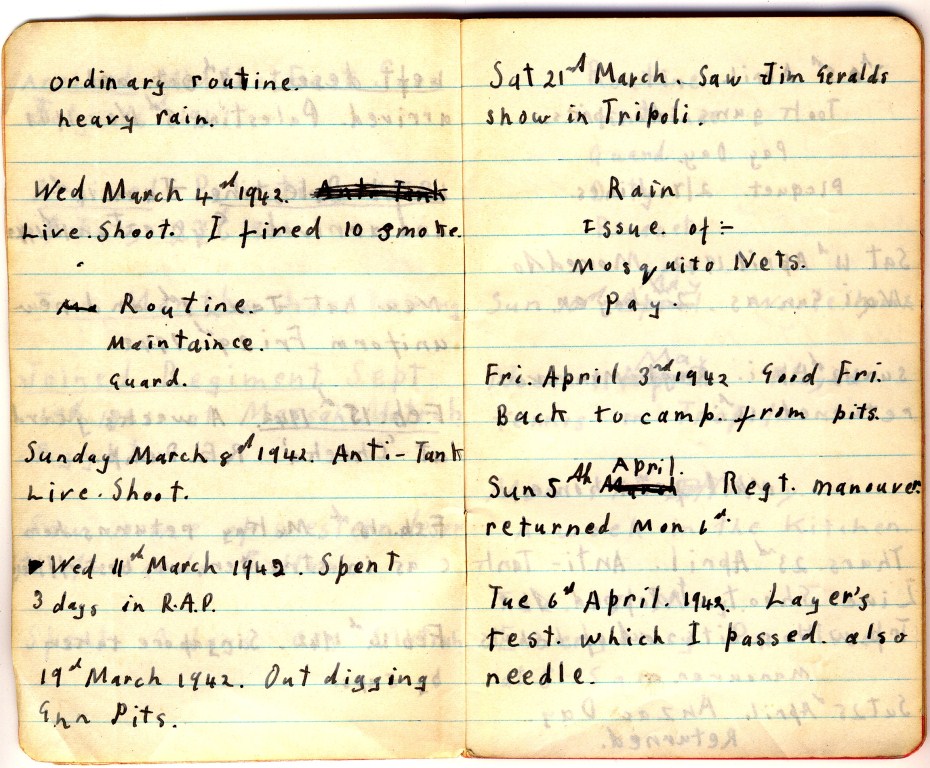 ordinary routine.
heavy rain.
Wed March 4rd 1942. Anti-Tank
Live. Shoot. I fired 10 smoke.
Routine.
Maintaince.
Guard.
Sunday March 8rd 1942. Anti-Tank
Live. Shoot.
Wed 11rd March 1942. Spent
3 days in R.A.P.
19rd March 1942. Out digging
Gun Pits.
Sat 21rd March. Saw Jim Geralds
show in Tripoli.
Rain
Issue. of :-
Mosquito Nets.
Pay.
Fri. April 3rd 1942 Good Fri.
Back to camp. from pits.
April.
Sun 5th March Regt. manouver
returned Mon 6rd.
Tue 6rd April. 1942. Layer's
test. which I passed. also
needle.